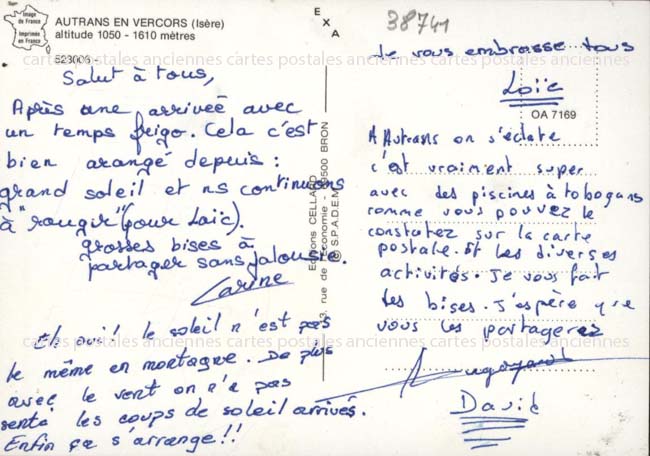 Image de France
Imprimée en France
AUTRANS EN VERCORS (Isère)
altitude 1050 - 1610 mètres
523006
EXA
38741
cartes postales anciennes cartes postales anciennes cartes postales anciennes
Salut à tous,
Après une arrivée avec
un temps frigo. Cela c'est
bien arangé depuis :
grand soleil et ns continuons
à "rougir" (pour Loïc).
grosses bises à
partager sans jalousie.
Carine
Eh oui! le soleil n'est pas
le même en montagne. De plus
avec le vent on n'a pas
senti les coups de soleil arrivés.
Enfin ça s'arrange !!
Editions CELLARD
3, rue de l'Economie - 69500 BRON
© S.P.A.D.E.M.
Je vous embrasse tous
Loïc
OA 7169
A Autrans on s'éclate
c'est vraiment super
avec des piscines à tobogans
comme vous pouvez le
constatez sur la carte
postale. Et les diverses
activités. Je vous fait
des bises. J'espère que
vous les partagerez
David
cartes postales anciennes cartes postales anciennes cartes postales anciennes